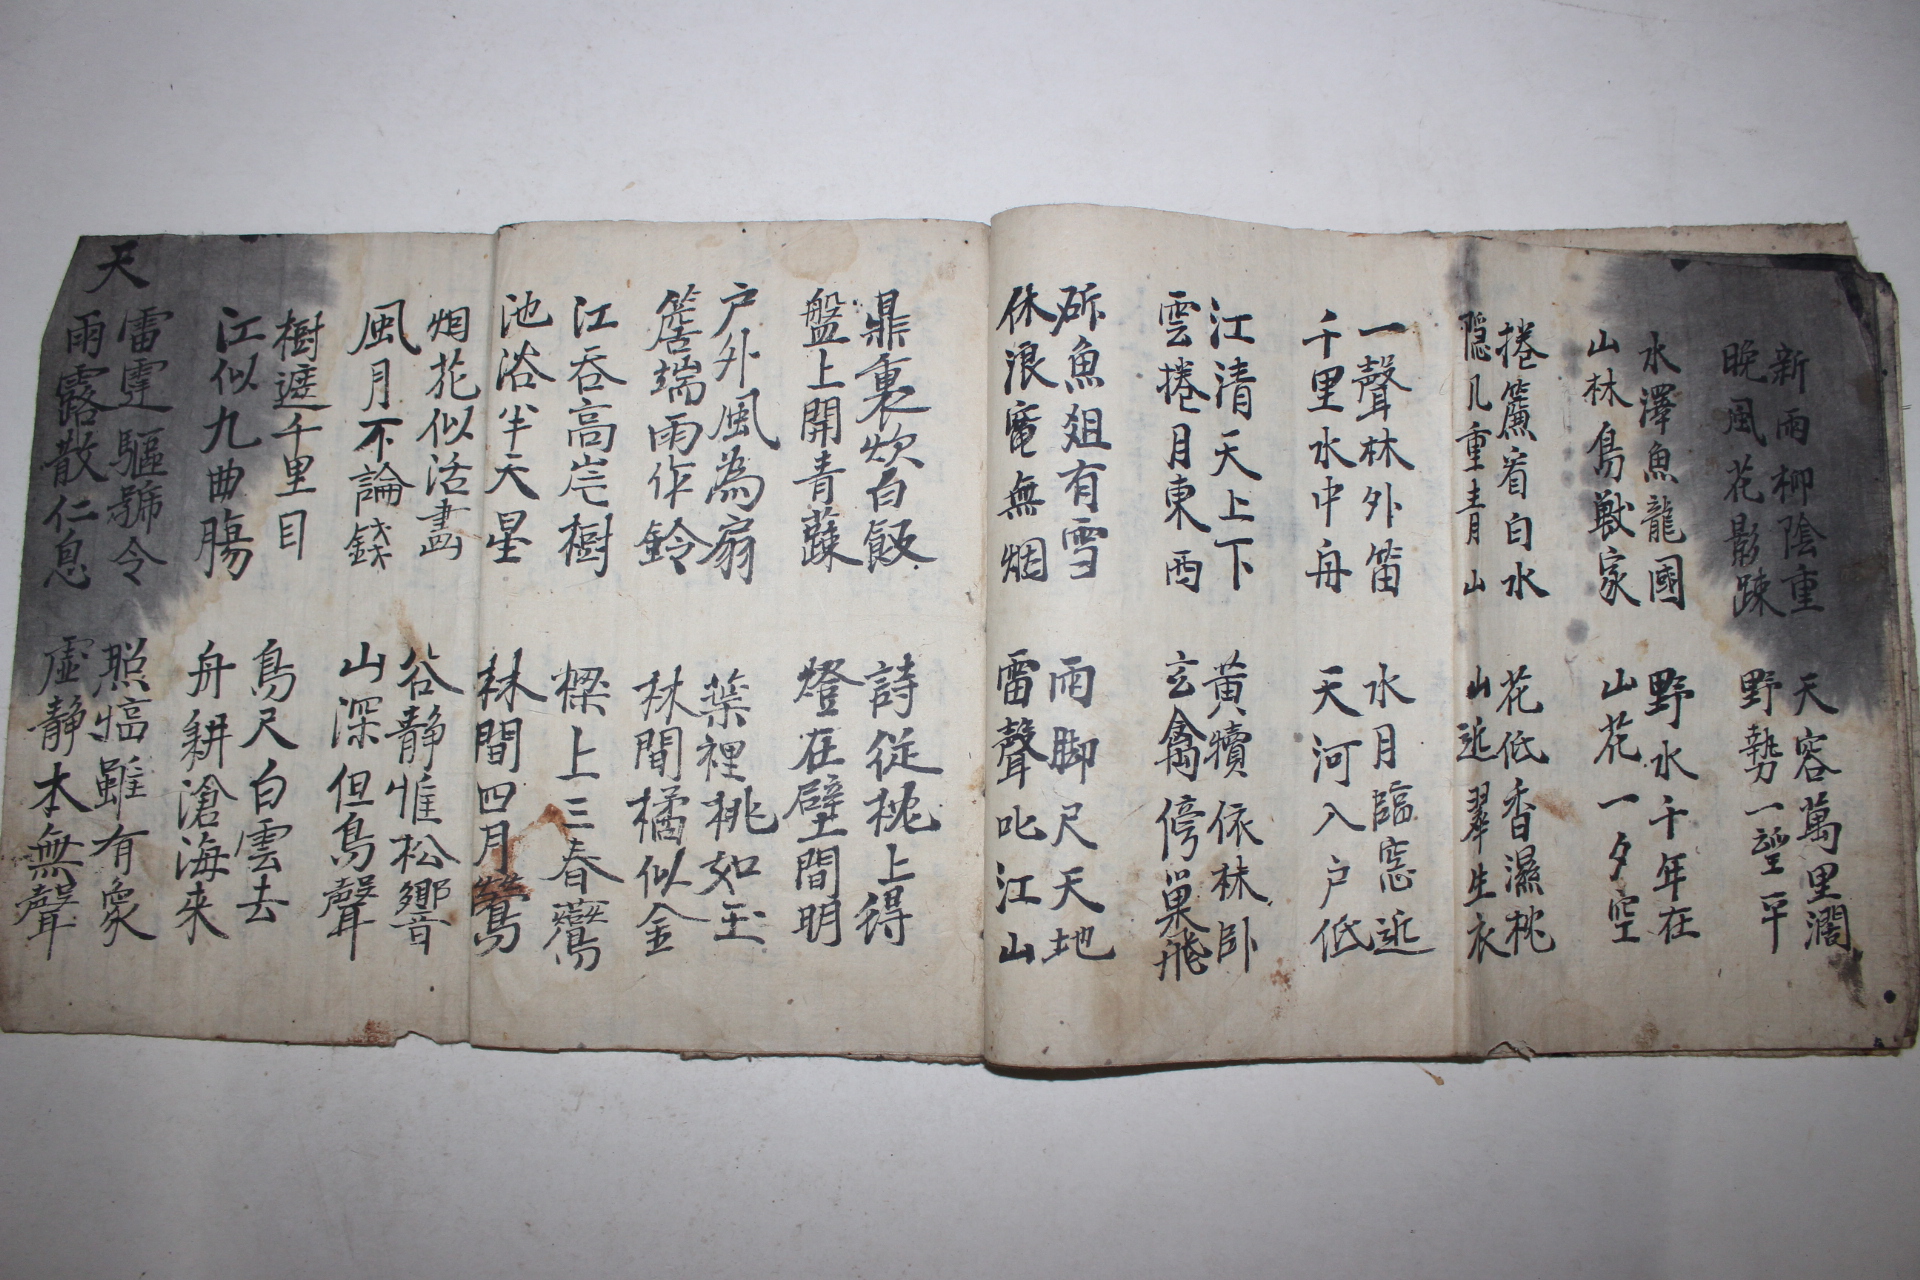 新雨柳陰重
晩風花影疎
天容萬里濶
野勢一望平
水澤魚龍國
山林鳥獸家
野水千年在
山花一夕空
捲簾看白水
隠几重青山
花低香濕枕
山近翠生衣
一聲林外笛
千里水中舟
水月臨窓近
天河入户低
江清天上下
雲捲月東西
黃犢依林卧
玄禽停巢飛
斫魚俎有雪
休浪竃無烟
雨脚尺天地
雷聲叱江山
鼎裏炊白飯
盤上開青蔬
詩従枕上得
燈在壁間明
户外風為扇
簷端雨作鈴
葉裡桃如玉
林間橘似金
江呑高岸樹
池浴半天星
樑上三春鷰
林間四月鶯
烟花似活畵
風月不論錢
谷静惟松響
山深但鳥聲
樹遮千里目
江似九曲膓
鳥尺白雲去
舟耕滄海来
天
雷霆驅號令
雨露散仁息
照臨雖有象
虛静本無聲